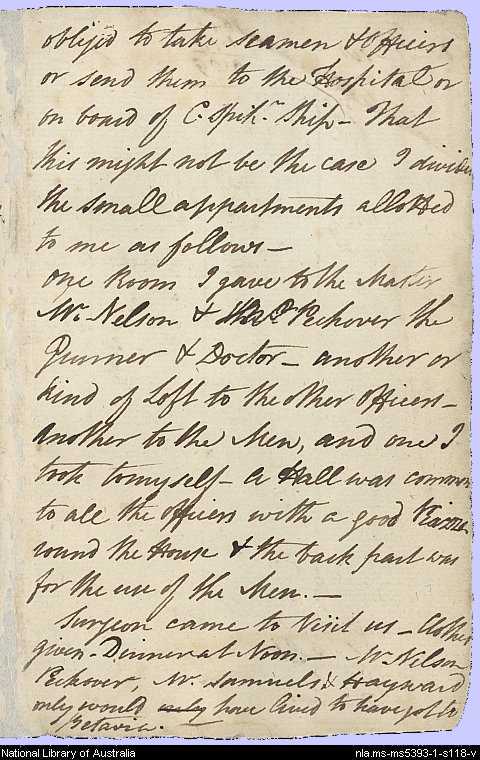 oblijed to take seamen & Officers
or send them to the Hospital or
on board of C. Spikr. Ship - That
this might not be the case I divided
the small appartments allotted
to me as follows -
One Room I gave to the Master
Mr. Nelson & Peckover the
Gunner & Doctor - another or
kind of Loft to the other Officers -
Another to the Men, and one I
took tomyself - a Hall was common
to all the officers with a good Piazza
round the House & the back part was
for the use of the Men. -
Surgeon came to Visit us - Clothes
given - Dinner at Noon. - Mr. Nelson
Peckover, Mr. Samuels & Hayward
only would only have lived to have got to
Batavia.
National Library of Australia
nla.ms-ms5393-1-s118-v